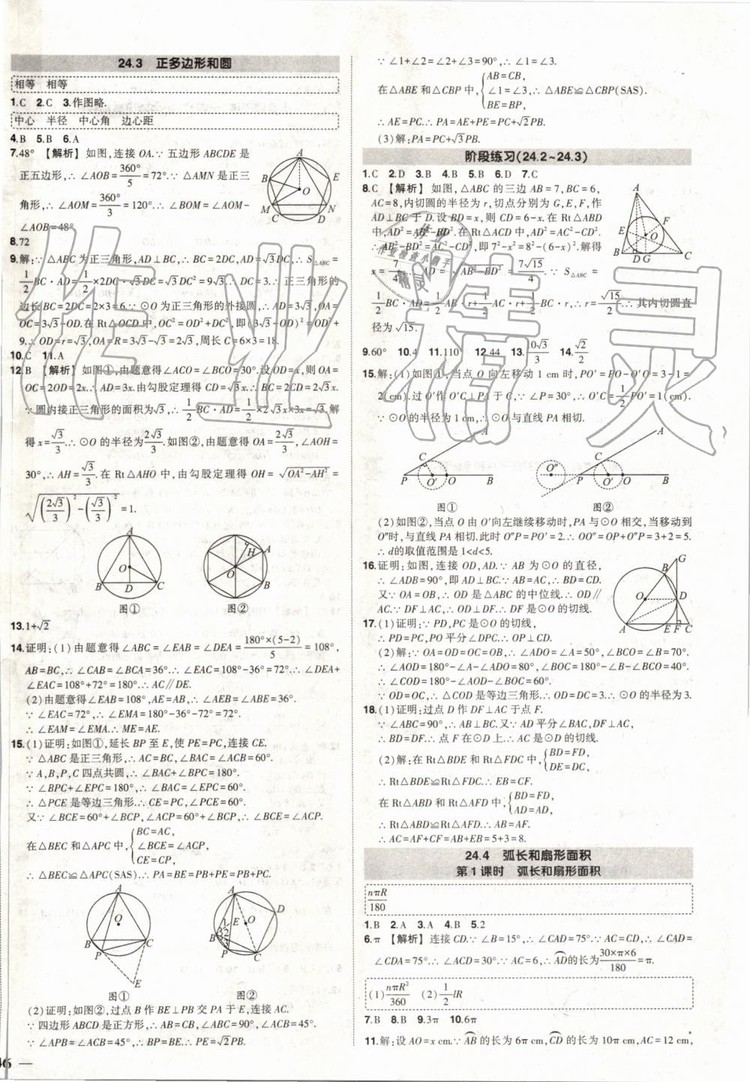 24.3 正多边形和圆
相等 相等
1.C 2.C 3.作图略.
中心 半径 中心角 边心距
4.B 5.B 6.A
7.48° 【解析】如图,连接 OA.∵五边形 ABCDE 是
正五边形,∴∠AOB=360°/5=72°.∵△AMN 是正三
角形,∴∠AOM=360°/3=120°.∴∠BOM=∠AOM-
∠AOB=48°.
8.72
9.解:∵△ABC 为正三角形,AD⊥BC,∴AD=√3DC.∴S△ABC=
1/2BC·AD=1/2×2DC·√3DC=√3DC²=9√3.∴DC=3.∴正三角形的
边长 BC=2DC=2×3=6.∵⊙O 为正三角形的外接圆,∴AD=3√3,OA=
3√3-OD.在 Rt△OCD 中,OC²=OD²+DC²,即(3√3-OD)²=OD²+
9.∴OD=r=√3,OA=R=3√3-√3=2√3,周长 C=6×3=18.
10.C 11.A
12.B 【解析】如图①,由题意得∠ACO=∠BCO=30°.设 OD=x,则 OA=
OC=2OD=2x.∴AD=3x.由勾股定理得 CD=√3x.∴BC=2CD=2√3x.
∵圆内接正三角形的面积为√3,∴1/2BC·AD=1/2×2√3x×3x=√3.解
得 x=√3/3.∴⊙O 的半径为2√3/3.如图②,由题意得 OA=2√3/3,∠AOH=
30°,∴AH=√3/3.在 Rt△AHO 中,由勾股定理得 OH=√(OA²-AH²)=
√((2√3/3)²-(√3/3)²)=1.
图① 图②
13.1+√2
14.证明:(1)由题意得∠ABC=∠EAB=∠DEA=180°×(5-2)/5=108°,
AB=BC,∴∠CAB=∠BCA=36°.∴∠EAC=108°-36°=72°.∴∠DEA+
∠EAC=108°+72°=180°.∴AC∥DE.
(2)由题意得∠EAB=108°,AE=AB,∴∠AEB=∠ABE=36°.
∵∠EAC=72°,∴∠EMA=180°-36°-72°=72°.
∴∠EAM=∠EMA.∴ME=AE.
15.(1)证明:如图①,延长 BP 至 E,使 PE=PC,连接 CE.
∵△ABC 是正三角形,∴AC=BC,∠BAC=∠ACB=60°.
∵A,B,P,C 四点共圆,∴∠BAC+∠BPC=180°.
∵∠BPC+∠EPC=180°,∴∠BAC=∠EPC=60°.
∴△PCE 是等边三角形.∴CE=PC,∠PCE=60°.
又∵∠BCE=60°+∠BCP,∠ACP=60°+∠BCP,∴∠BCE=∠ACP.
在△BEC 和△APC 中,{BC=AC,∠BCE=∠ACP,CE=CP,
∴△BEC≌△APC(SAS).∴PA=BE=PB+PE=PB+PC.
图① 图②
(2)证明:如图②,过点 B 作 BE⊥PB 交 PA 于 E,连接 AC.
∵四边形 ABCD 是正方形,∴∠BAC=∠ACB=45°.
∴∠APB=∠ACB=45°,∴BP=BE.∴PE=√2PB.
∵∠1+∠2=∠2+∠3=90°,∴∠1=∠3.
在△ABE 和△CBP 中,{AB=CB,∠1=∠3,BE=BP,∴△ABE≌△CBP(SAS).
∴AE=PC.∴PA=AE+PE=PC+√2PB.
(3)解:PA=PC+√3PB.
阶段练习(24.2~24.3)
1.C 2.D 3.B 4.C 5.C 6.D 7.C
8.C 【解析】如图,△ABC 的三边 AB=7,BC=6,
AC=8,内切圆的半径为 r,切点分别为 G,E,F,作
AD⊥BC 于 D.设 BD=x,则 CD=6-x.在 Rt△ABD
中,AD²=AB²-BD².在 Rt△ACD 中,AD²=AC²-
CD²,∴AB²-BD²=AC²-CD²,即7²-x²=8²-(6-x)².解得
1/2BC·AD=1/2AB·r+1/2AC·r+1/2BC·r,∴r=√15/2.∴其内切圆直
径为√15.
9.60° 10.4 11.110 12.44
15.解:(1)如图①,当点 O 向左移动 1 cm 时,PO′=PO-O′O=3-1=
2(cm).过 O′作 O′C⊥PA 于 C,∵∠P=30°,∴O′C=1/2PO′=1 cm.
∵⊙O 的半径为 1 cm,∴⊙O 与直线 PA 相切.
图① 图②
(2)如图②,当点 O 由 O′向左继续移动时,PA 与⊙O 相交,当移动到
O″时,与直线 PA 相切.此时 O″P=PO′=2.∴OO″=OP+O″P=3+2=5.
∴d的取值范围是 1<d<5.
16.证明:如图,连接 OD,AD.∵AB 为⊙O 的直径,
∴∠ADB=90°,即 AD⊥BC.∵AB=AC,∴BD=CD.
又∵OA=OB,∴OD 是△ABC 的中位线.∴OD∥
AC.∵DF⊥AC,∴OD⊥DF.∴DF 是⊙O 的切线.
17.(1)证明:∵PD,PC 是⊙O 的切线,
∴PD=PC,PO 平分∠DPC.∴OP⊥CD.
(2)解:∵OA=OD=OC=OB,∴∠ADO=∠A=50°,∠BCO=∠B=70°.
∴∠AOD=180°-∠A-∠ADO=80°,∠BOC=180°-∠B-∠BCO=40°.
∴∠COD=180°-∠AOD-∠BOC=60°.
∵OD=OC,∴△COD 是等边三角形.∴OD=DC=3.∴⊙O 的半径为 3.
18.(1)证明:过点 D 作 DF⊥AC 于点 F.
∵∠ABC=90°,∴AB⊥BC.又∵AD 平分∠BAC,DF⊥AC,
∴BD=DF.∴点 F 在⊙D 上.∴AC 是⊙D 的切线.
(2)解:在 Rt△BDE 和 Rt△FDC 中,{BD=FD,DE=DC,
∴Rt△BDE≌Rt△FDC.∴EB=CF.
在 Rt△ABD 和 Rt△AFD 中,{BD=FD,AD=AD,
∴Rt△ABD≌Rt△AFD.∴AB=AF.
∴AC=AF+CF=AB+EB=5+3=8.
24.4 弧长和扇形面积
第 1 课时 弧长和扇形面积
nπR/180
1.B 2.A 3.A 4.B 5.2
6.π 【解析】连接 CD.∵∠B=15°,∴∠CDA=75°.∵AC=CD,∴∠CAD=
∠CDA=75°.∴∠ACD=30°.∵AC=6,∴AD的长为30×π×6/180=π.
(1)nπR²/360 (2)1/2lR
7.B 8.B 9.3π 10.6π
11.解:设 AO=x cm.∵AB的长为 6π cm,CD的长为 10π cm,AC=12 cm,
46